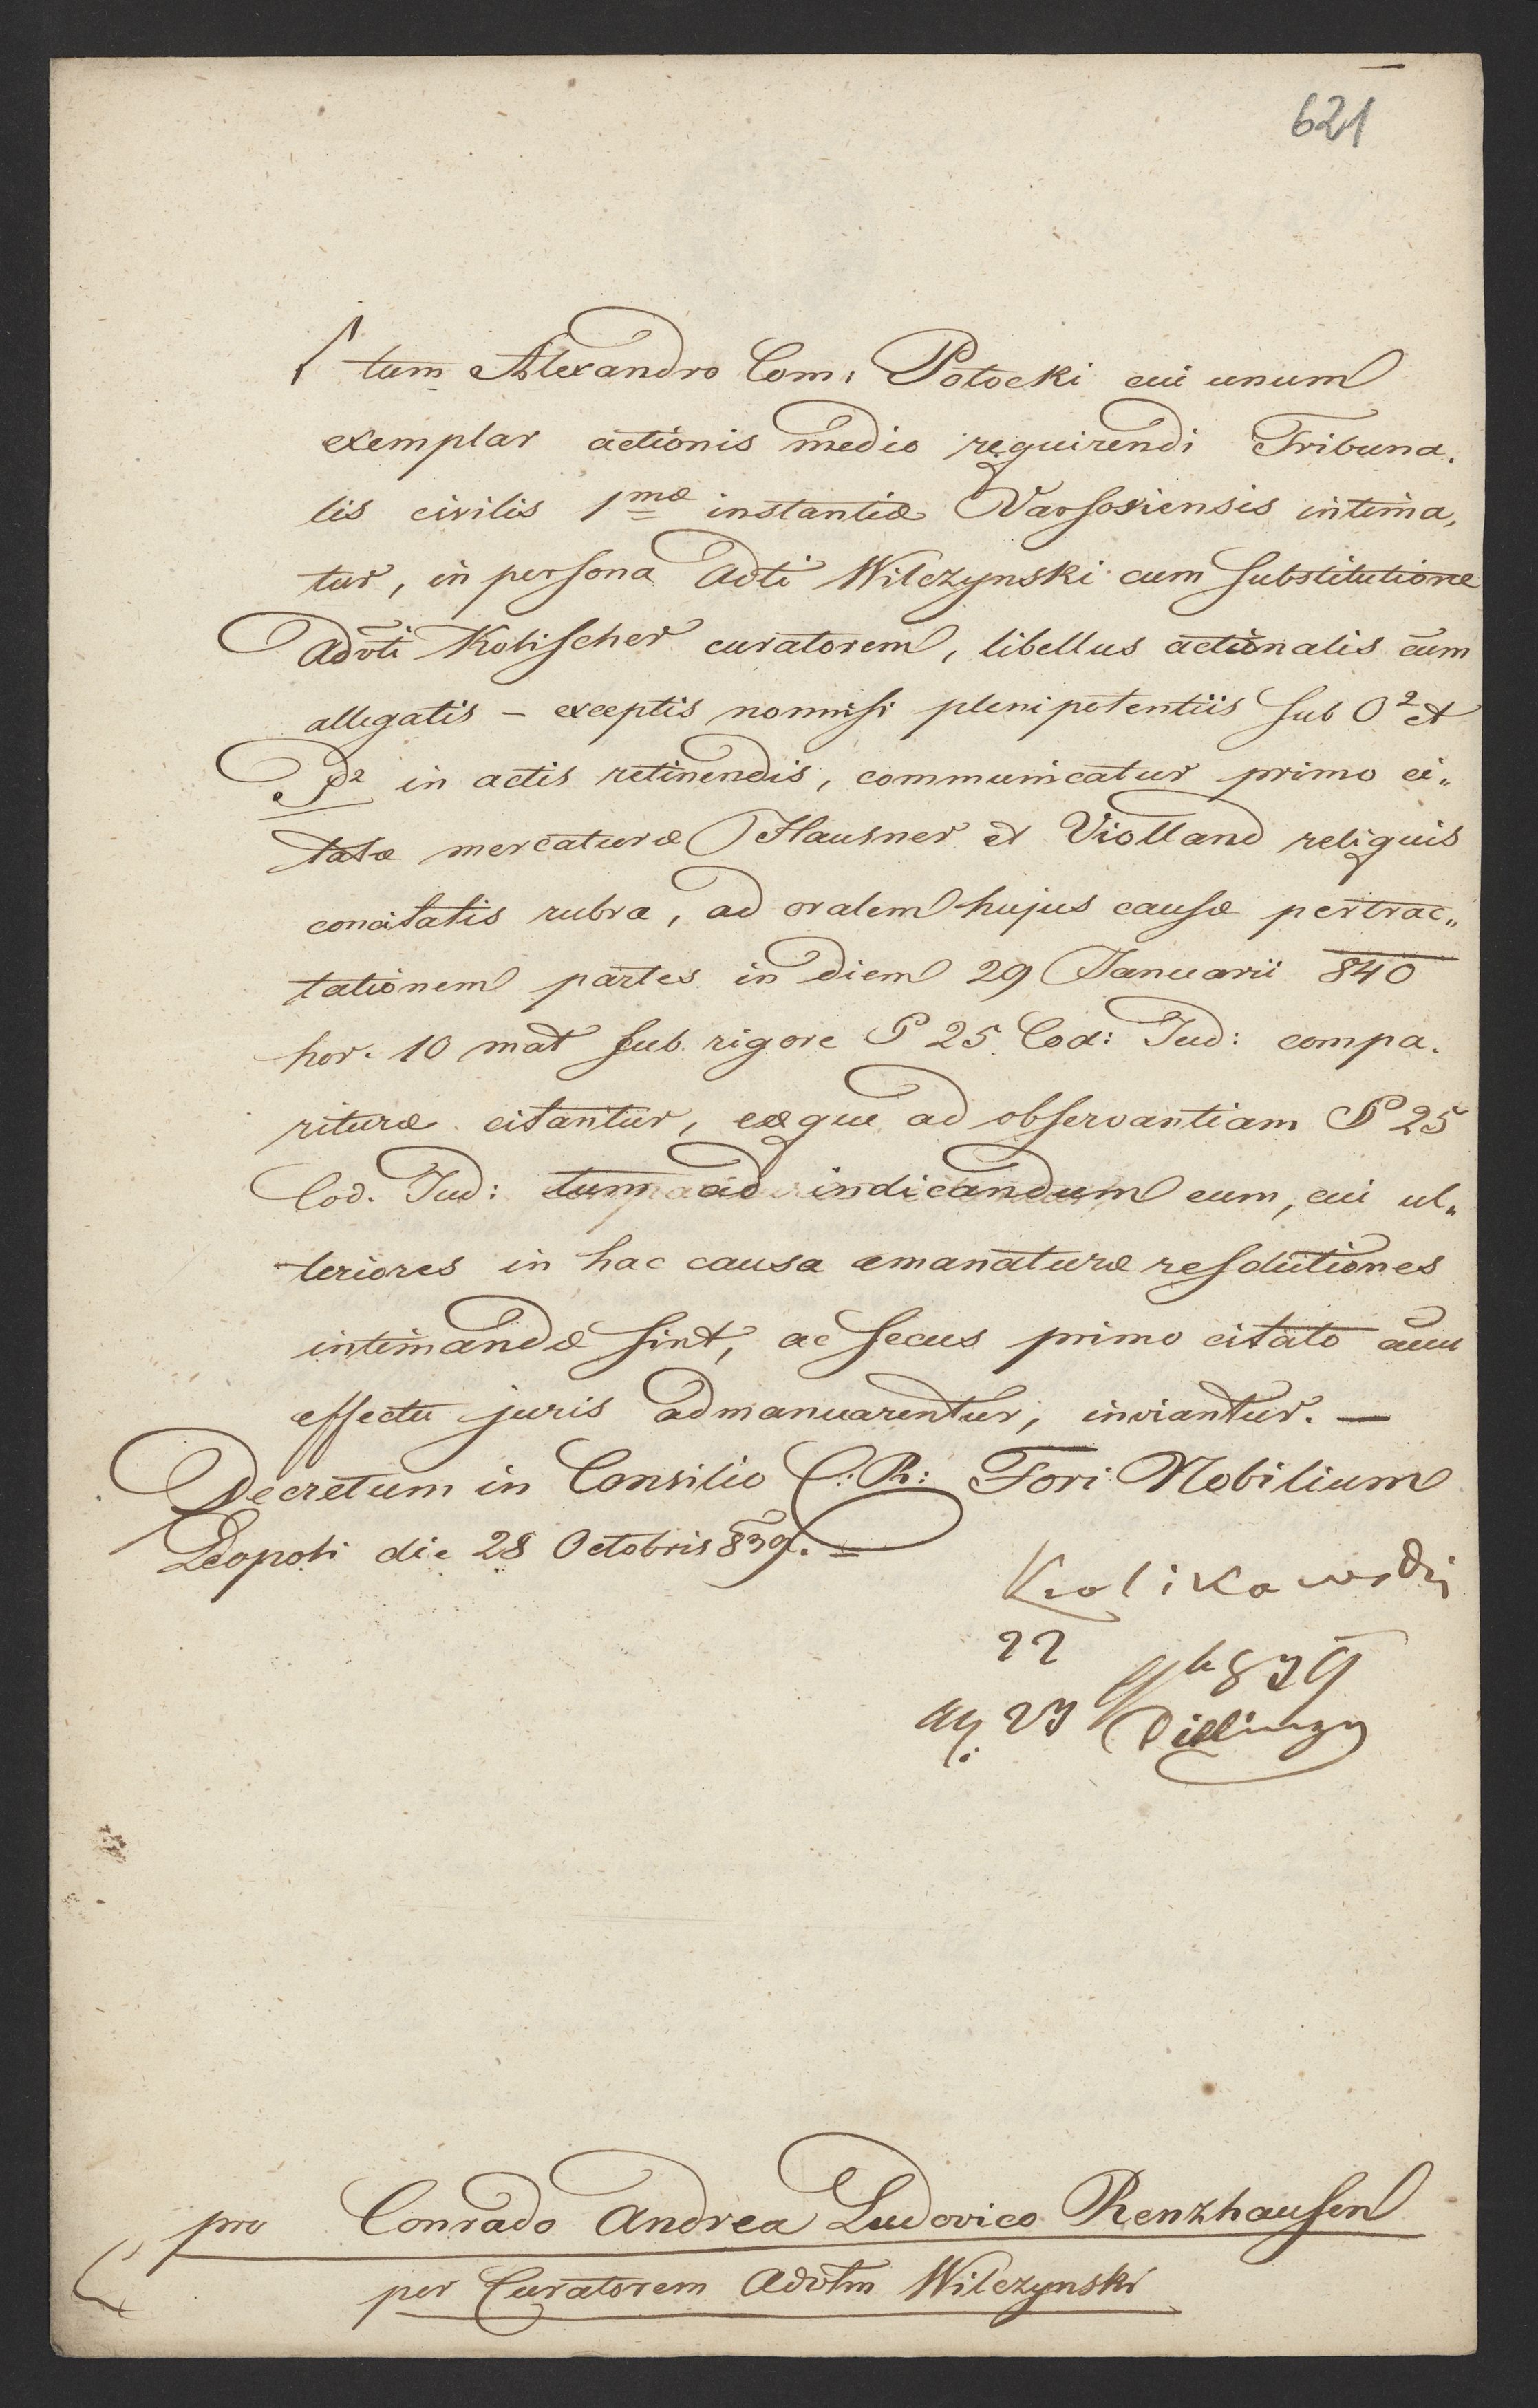 621
tum Alexandro Com: Potocki cui unum
exemplar actionis medio requirendi Tribuna„
lis civilis 1mæ instantiæ Varsoviensis intima„
tur, in persona Adti Wilczynski cum substitutione
Advti Kolischer curatorem, libellus actionalis cum
allegatis – exceptis nonnisi plenipotentiis sub O² et
P² in actis retinendis, communicatur primo ci„
tatæ mercaturæ Hausner et Violland reliquis
concitatis rubra, ad oralem hujus causæ pertrac„
tationem partes in diem 29 Januarii 840
hor. 10 mat sub rigore § 25 Cod: Jud: compa„
rituræ citantur, eæque ad observantiam § 25
Cod. Jud: tum ad indicandum eum, cui ul„
teriores in hac causa emanaturæ resolutiones
intimandæ sint, ac secus primo citato cum
effectu juris admanuarentur, inviantur. —
Decretum in Consilio C: R: Fori Nobilium
Leopoli die 28 Octobris 839. —
Krolikowski
22
9b 839
23
pro Conrado Andrea Ludovico Renzhausen
per Curatorem Advtm Wilczynski